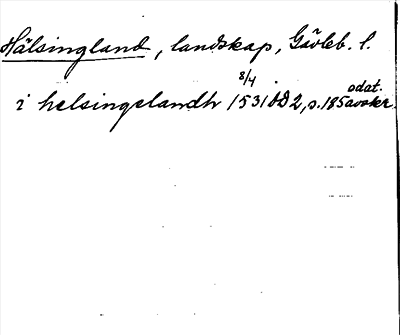 Hälsingland, landskap, Gävleb. l.
i helsingelandh 8/4 1531 ÖD 2, s. 185 odat. avskr.